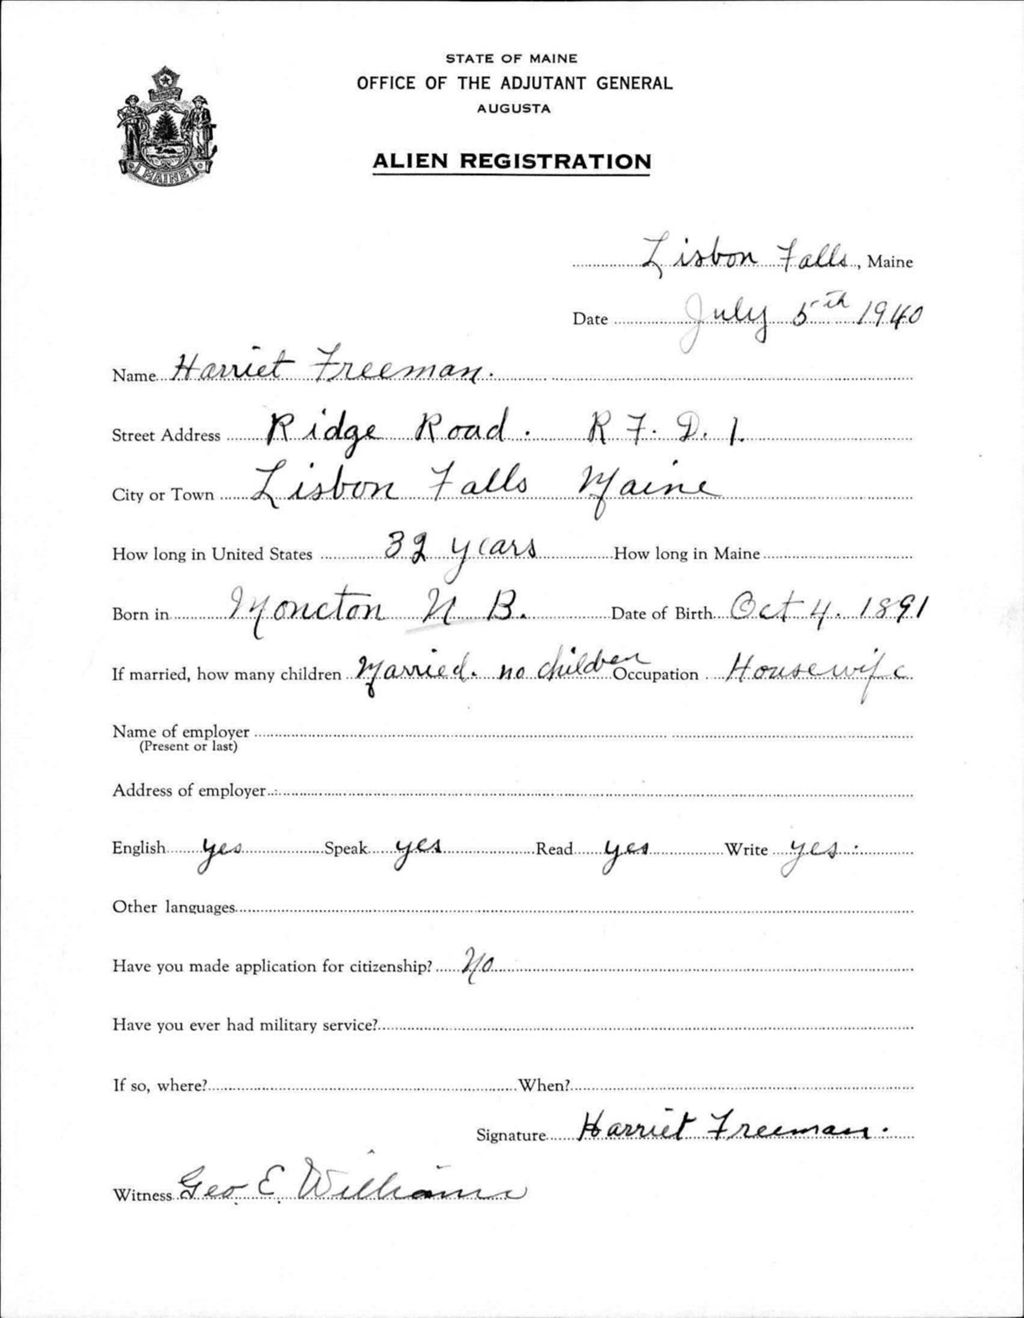 STATE OF MAINE
OFFICE OF THE ADJUTANT GENERAL
AUGUSTA
ALIEN REGISTRATION
MAINE
Lisbon Falls, Maine
Date July 5th 1940
Name Harriet Freeman.
Street Address Ridge Road. R F. D. 1.
City or Town Lisbon Falls Maine
How long in United States 32 years How long in Maine
Born in Moncton N B. Date of Birth Oct 4. 1891
If married, how many children Married. no children Occupation Housewife
Name of employer
(Present or last)
Address of employer
English yes Speak yes Read yes Write yes.
Other languages
Have you made application for citizenship? No
Have you ever had military service?
If so, where? When?
Signature Harriet Freeman.
Witness Geo. E. Williams